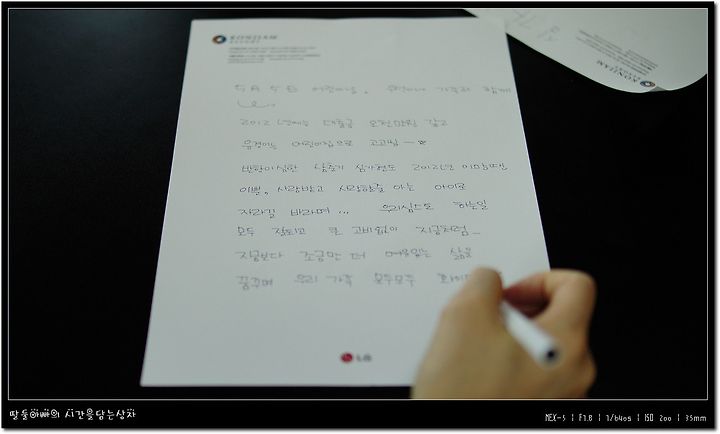 KONJIAM
RESORT
5月 5日 어린이날, 우리가족과 함께
2012년에는 대출금 오천만원 갚고
유경이는 어린이집으로 고고씽~☆
반항이심한 남훈기 심가현도 2012년 이맘때엔
이쁨, 사랑받고 사랑할줄 아는 아이로
자라길 바라며... 우리심스도 하는일
모두 잘되고 큰 고비없이 지금처럼..
지금보다 조금만 더 여유있는 삶을
꿈꾸며 우리 가족 모두모두
LG
KONJIAM
RESORT
딸둘아빠의 시간을담는상자
NEX-5 | F1.8 | 1/640s | ISO 200 | 35mm